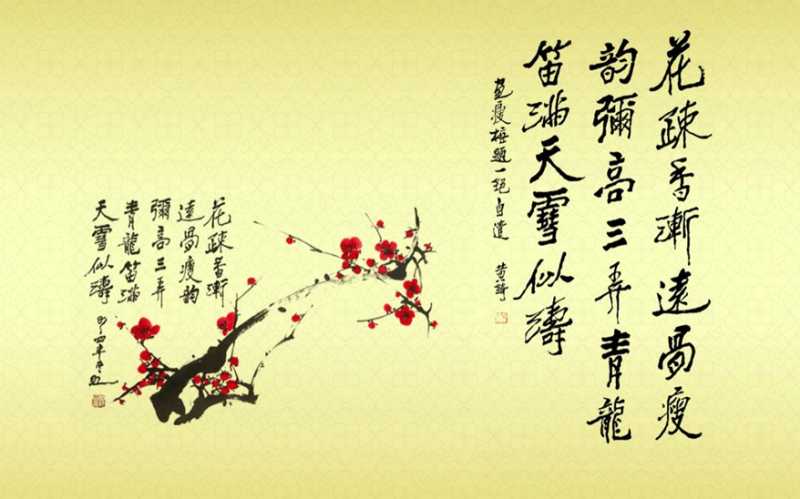 花疎香漸遠骨瘦
韵彌高三弄青龍
笛滿天雪似濤
畫瘦梅題一絕自遣 黄綺
花疎香漸
遠骨瘦韵
彌高三弄
青龍笛滿
天雪似濤
四年